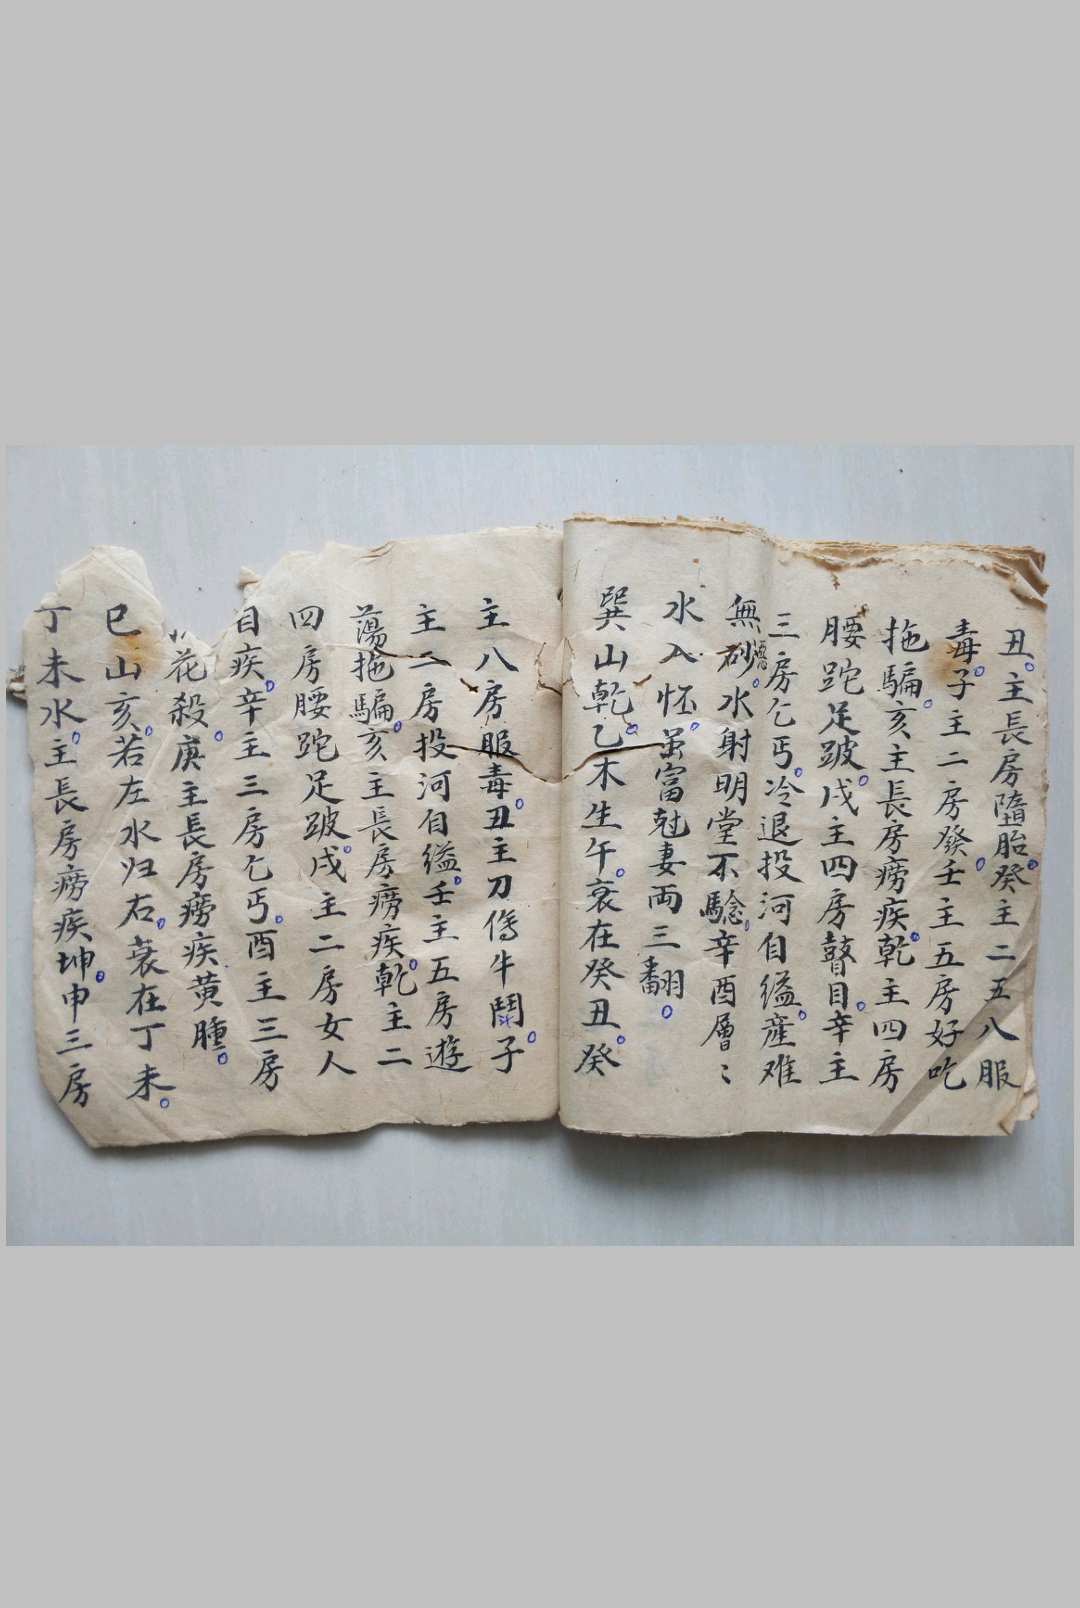 丑主長房墮胎癸主二五八服
毒子主二房發壬主五房好吃
拖騙亥主長房癆疾乾主四房
腰跎足跛戌主四房瞽目辛主
三房乞丐冷退投河自縊產难
無砂水射明堂不騐辛酉層〻
水入怀虽富尅妻両三翻
巽山乾乙木生午衰在癸丑癸
主八房服毒丑主刀傷牛鬭子
主二房投河自縊壬主五房遊
蕩拖騙亥主長房癆疾乾主二
四房腰跎足跛戌主二房女人
目疾辛主三房乞丐酉主三房
花殺庚主長房癆疾黄腫
巳山亥若左水归右衰在丁未
丁未水主長房癆疾坤申三房